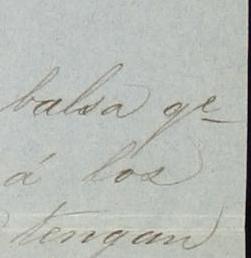 balsa qe
á los
tengan